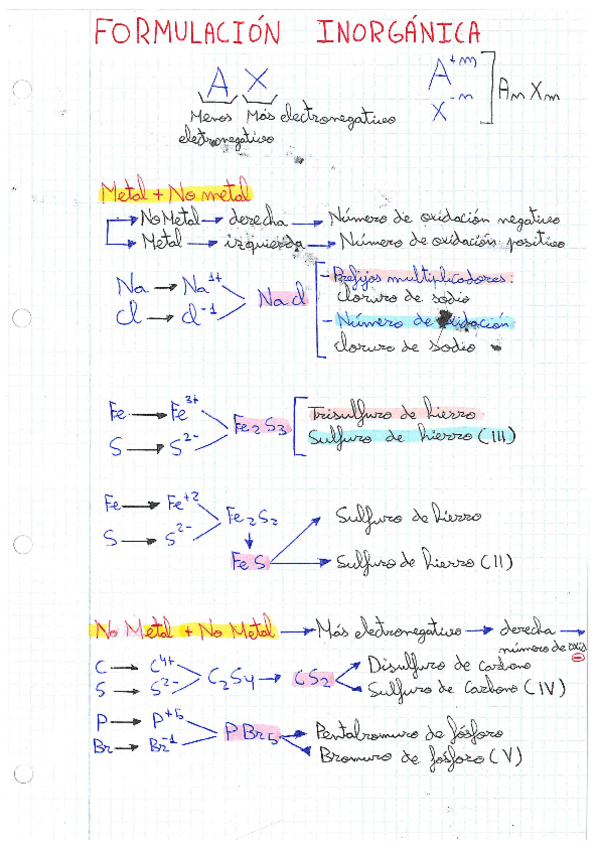 FORMULACIÓN INORGÁNICA
A X
Menos electronegativo
Más electronegativo
A⁺ᵐ
X⁻ⁿ
AₙXₘ
Metal + No metal
No Metal → derecha → Número de oxidación negativo
Metal → izquierda → Número de oxidación positivo
Na → Na¹⁺
Cl → Cl⁻¹
NaCl
- Prefijos multiplicadores:
cloruro de sodio
- Número de oxidación
cloruro de sodio
Fe → Fe³⁺
S → S²⁻
Fe₂S₃
Trisulfuro de hierro
Sulfuro de hierro (III)
Fe → Fe⁺²
S → S²⁻
Fe₂S₂
↓
FeS
Sulfuro de hierro
Sulfuro de hierro (II)
No Metal + No Metal → Más electronegativo → derecha →
número de oxid
⊖
C → C⁴⁺
S → S²⁻
C₂S₄ → CS₂
Disulfuro de carbono
Sulfuro de Carbono (IV)
P → P⁺⁵
Br → Br⁻¹
PBr₅
Pentabromuro de fósforo
Bromuro de fósforo (V)